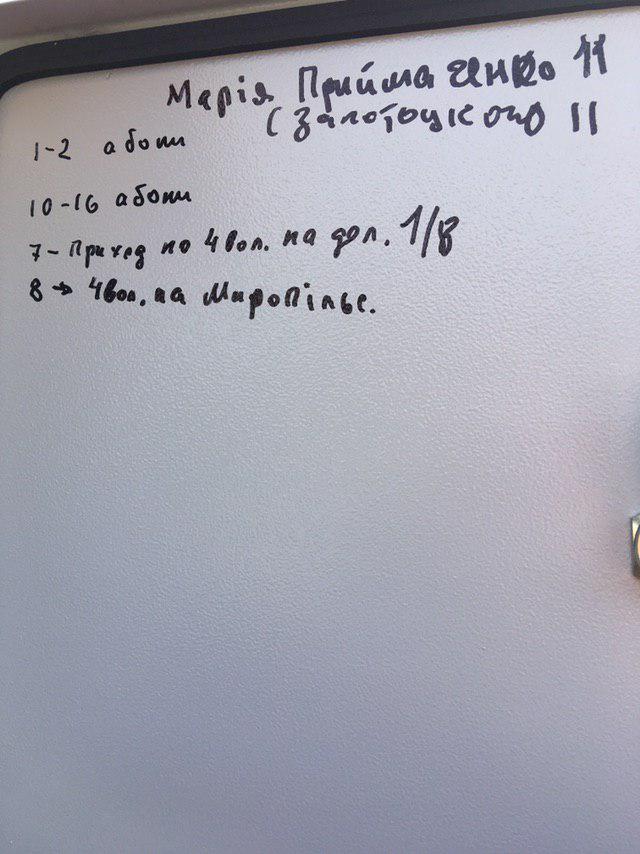 Марія Приймаченко 11
(Залотоцкого 11
1-2 абони
10-16 абони
7- Приход по 4 вол. на дол. 1/8
8 → 4 вол. на Миропілье.